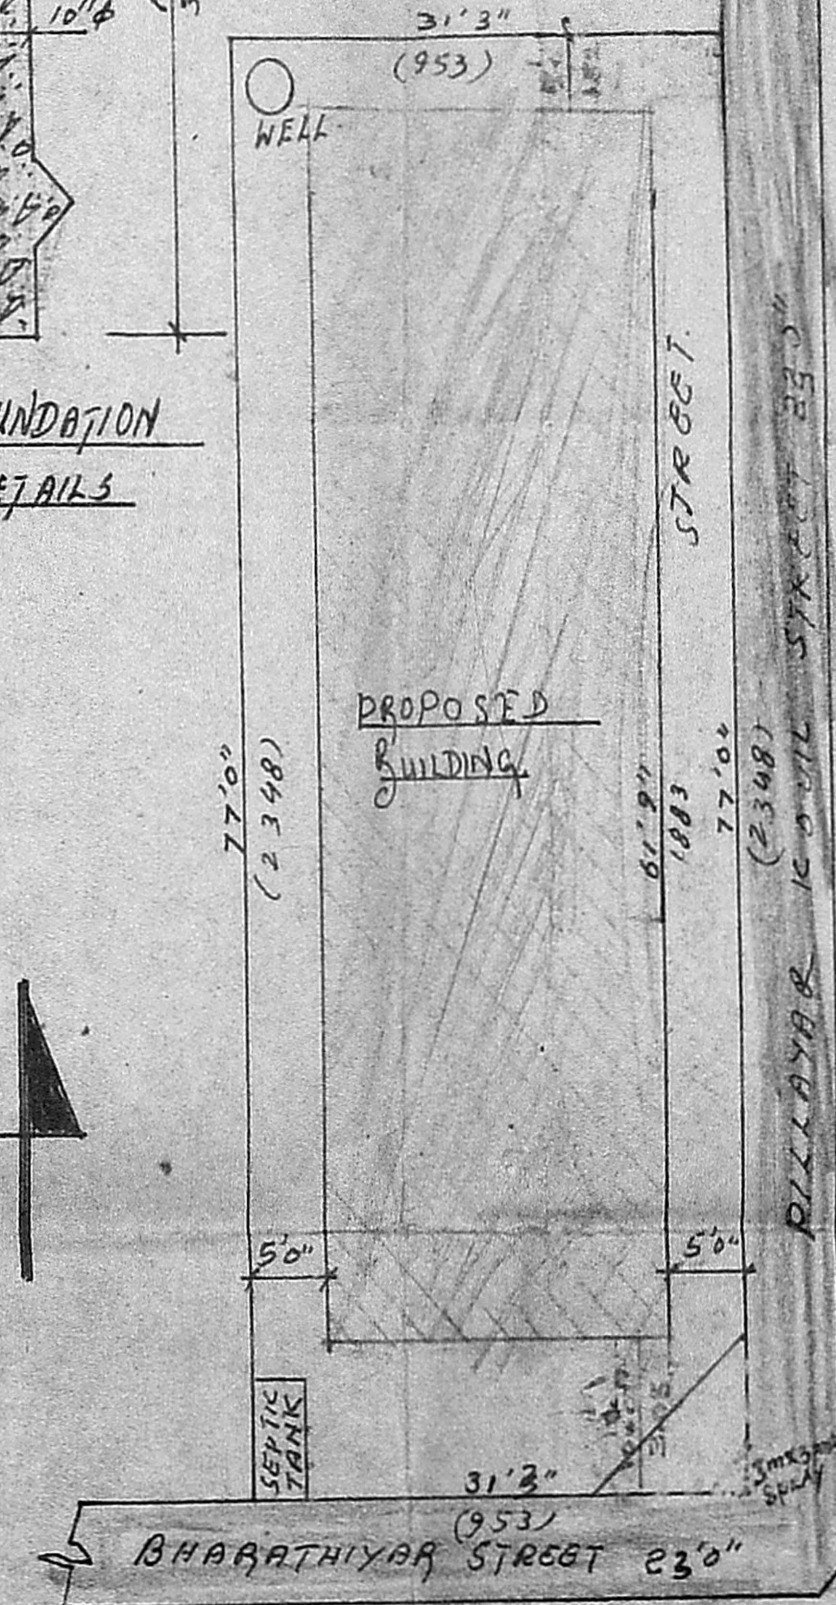 10"φ
31'3"
(953)
WELL
UNDATION
ETAILS
STREET.
PROPOSED
BUILDING
77'0"
(2348)
61'9"
1883
77'0"
(2348)
PILLAYAR KOVIL STREET 23'0"
5'0"
5'0"
SEPTIC
TANK
3m x 3m
Splay
31'3"
(953)
BHARATHIYAR STREET 23'0"